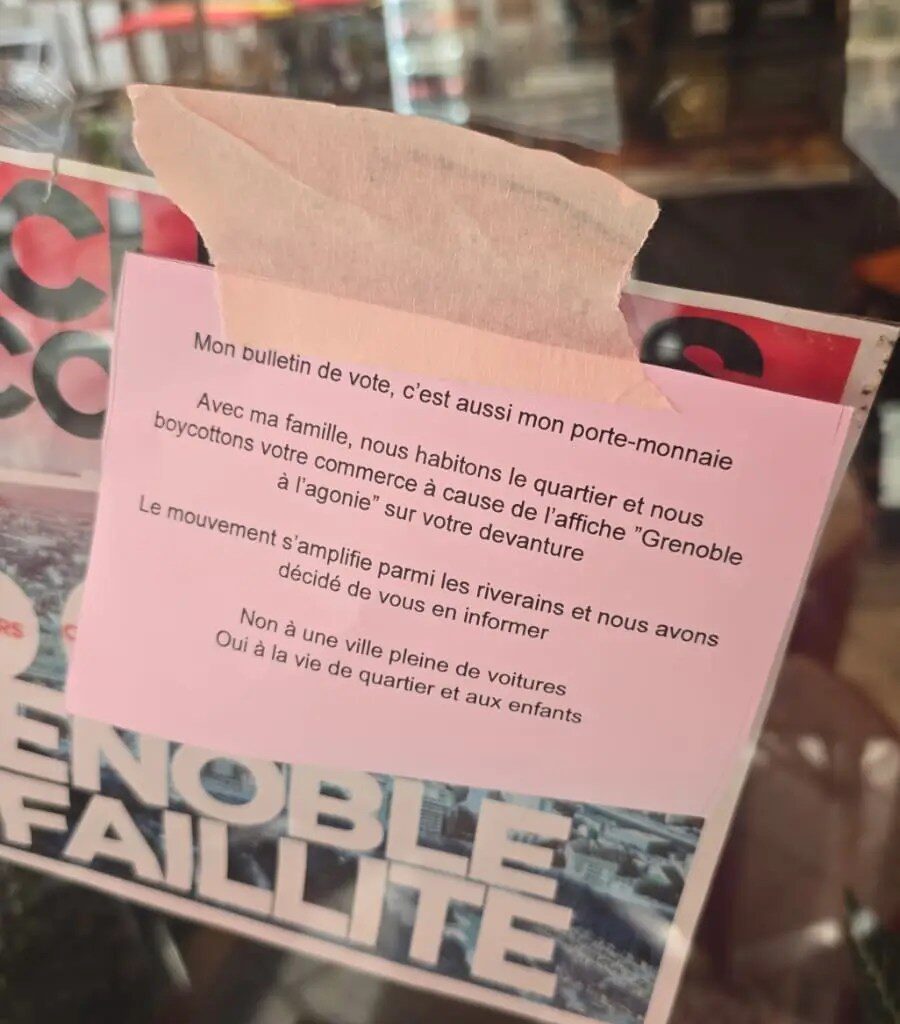 Mon bulletin de vote, c'est aussi mon porte-monnaie
Avec ma famille, nous habitons le quartier et nous
boycottons votre commerce à cause de l'affiche "Grenoble
à l'agonie" sur votre devanture
Le mouvement s'amplifie parmi les riverains et nous avons
décidé de vous en informer
Non à une ville pleine de voitures
Oui à la vie de quartier et aux enfants
ENOBLE
FAILLITE